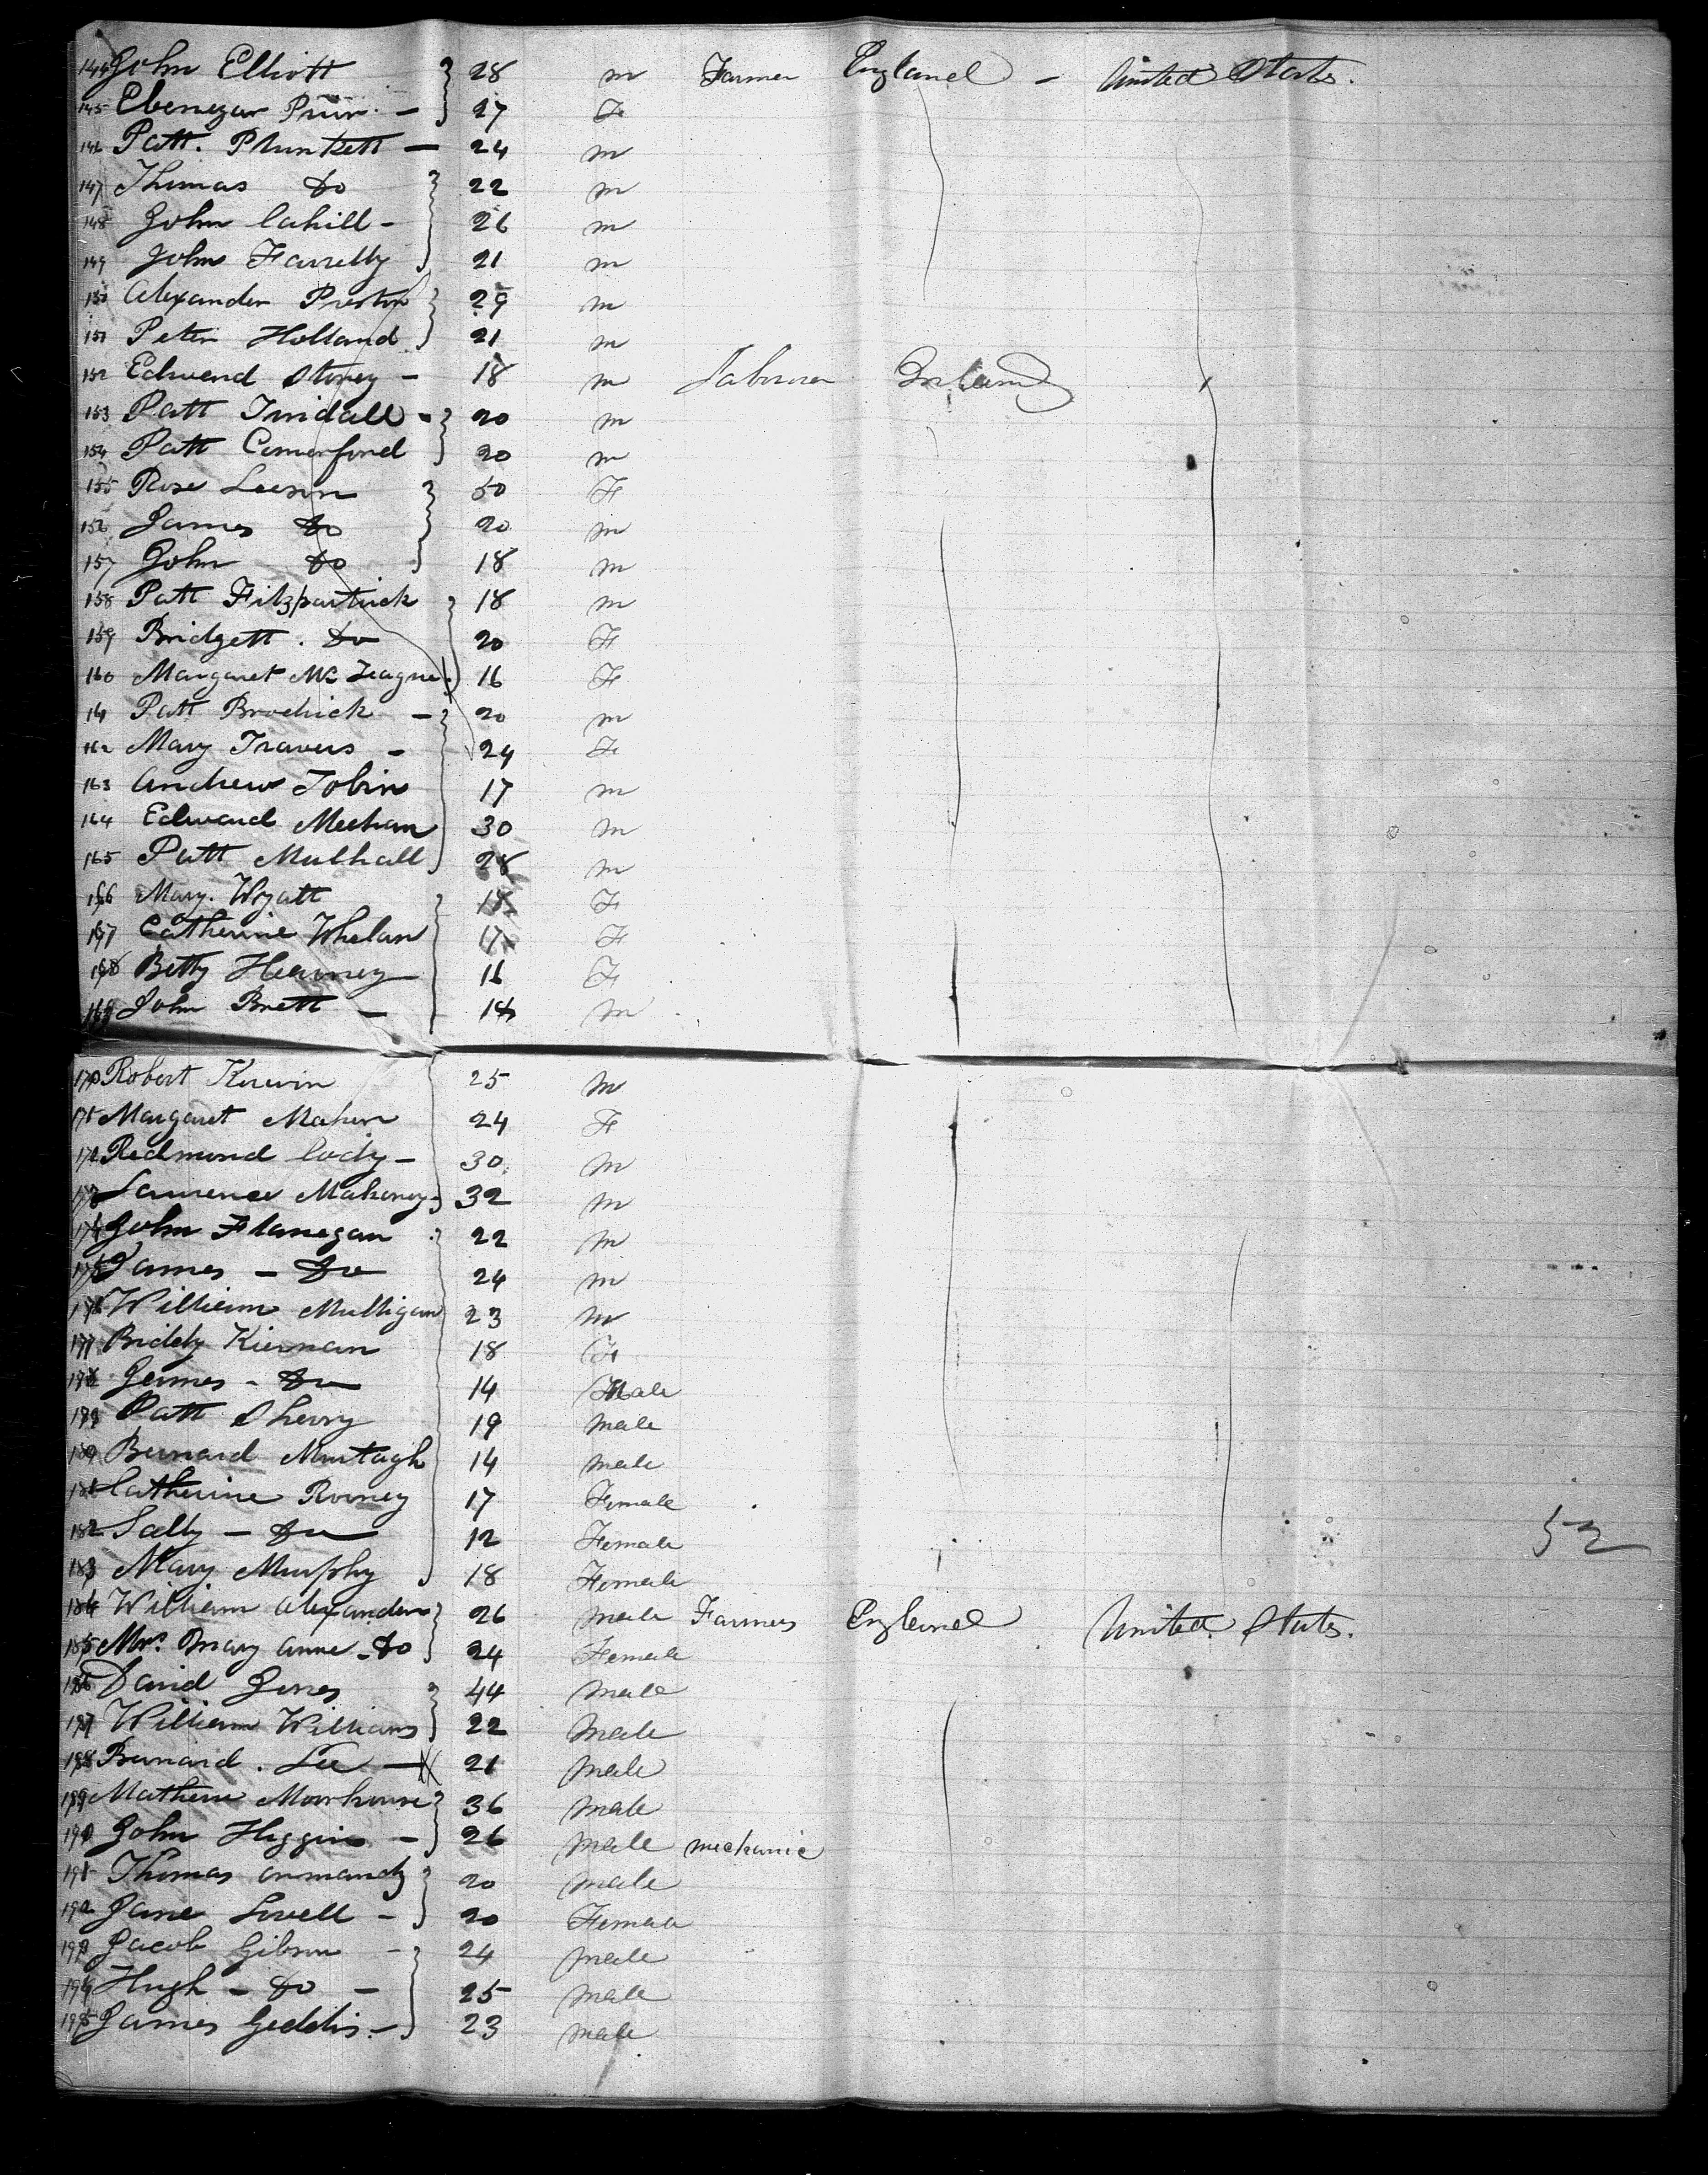 144 John Elliott 28 m Farmer England - United States.
145 Ebenezar - 27 F
146 Patt. Plunkett - 24 m
147 Thomas Do 22 m
148 John Cahill - 26 m
149 John Farrelly 21 m
150 Alexander Preston 29 m
151 Peter Holland 21 m
152 Edward Storey - 18 m Labourer Ireland
153 Patt Tindall - 20 m
154 Patt Comerford 20 m
155 Rose Leeson 50 F
156 James Do 20 m
157 John Do 18 m
158 Patt Fitzpartrick 18 m
159 Bridgett. Do 20 F
160 Margaret Mc Teague 16 F
161 Patt Brodrick - 20 m
162 Mary Travers - 24 F
163 Andrew Tobin 17 m
164 Edward Meehan 30 m
165 Patt Mulhall 28 m
166 Mary. Wyatt 18 F
167 Catherine Whelan 17 F
168 Betty Hearney 16 F
169 John Brett - 18 m
170 Robert Kerwin 25 m
171 Margaret Maher 24 F
172 Redmond Cody - 30 m
173 Lawrence Mahoney 32 m
174 John Flanegan 22 m
175 James - Do 24 m
176 William Mulligan 23 m
177 Biddy Kiernan 18 F
178 James - Do 14 Male
179 Patt Sherry 19 male
180 Bernard Murtagh 14 male
181 Catherine Rooney 17 Female
182 Sally - Do 12 Female 52
183 Mary Murphy 18 Female
184 William Alexander 26 male Farmers England United States.
185 Mrs. Mary Anne - Do 24 Female
186 David Jones 44 male
187 William Williams 22 male
188 Bernard. Lee - 21 male
189 Mathew Moorhouse 36 male
190 John Higgins - 26 male mechanic
191 Thomas 20 male
192 Jane Lovell - 20 Female
193 Jacob Gibson - 24 male
194 Hugh - Do - 25 male
195 James Geddis. - 23 male